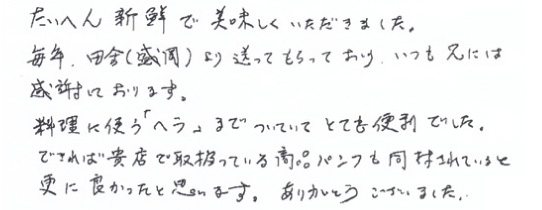 たいへん新鮮で美味しくいただきました。
毎年、田舎(盛岡)より送ってもらっており、いつも兄には
感謝しております。
料理に使う「ヘラ」までついていてとても便利でした。
できれば貴店で取扱っている商品パンフも同封されていると
更に良かったと思います。ありがとうございました。